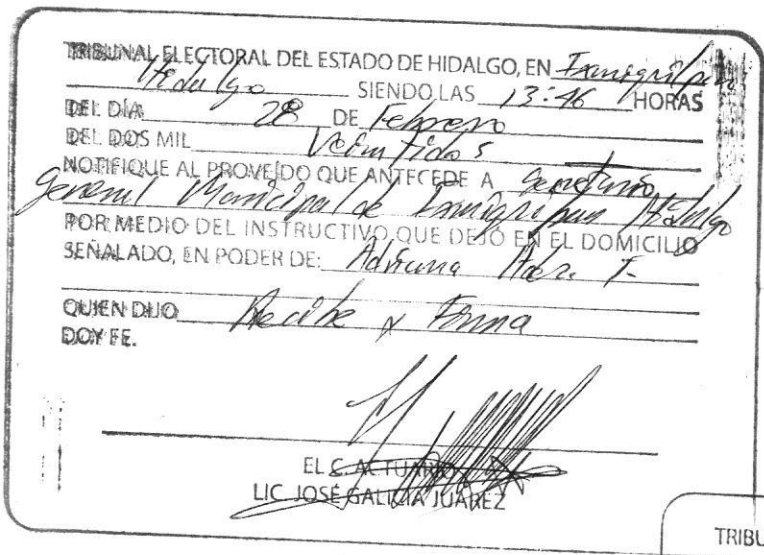 TRIBUNAL ELECTORAL DEL ESTADO DE HIDALGO, EN Ixmiquilpan
Hidalgo SIENDO LAS 13:46 HORAS
DEL DÍA 28 DE Febrero
DEL DOS MIL Veintidos
NOTIFIQUE AL PROVEÍDO QUE ANTECEDE A Secretario
General Municipal de Ixmiquilpan Hidalgo
POR MEDIO DEL INSTRUCTIVO QUE DEJÓ EN EL DOMICILIO
SEÑALADO, EN PODER DE: Adriana
QUIEN DIJO Recibe y Firma
DOY FE.
EL C. ACTUARIO
LIC. JOSÉ GALICIA JUÁREZ
TRIBU